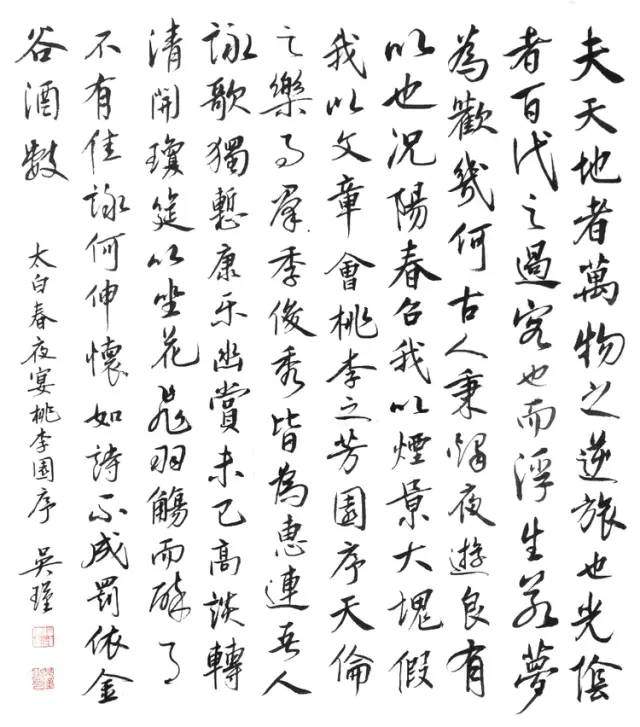 夫天地者萬物之逆旅也光陰
者百代之過客也而浮生若夢
為歡幾何古人秉燭夜遊良有
以也況陽春召我以煙景大塊假
我以文章會桃李之芳園序天倫
之樂事羣季俊秀皆為惠連吾人
詠歌獨慙康乐幽賞未已高談轉
清開瓊筵以坐花飛羽觴而醉月
不有佳詠何伸懷如詩不成罰依金
谷酒數
太白春夜宴桃李園序 吳瑾